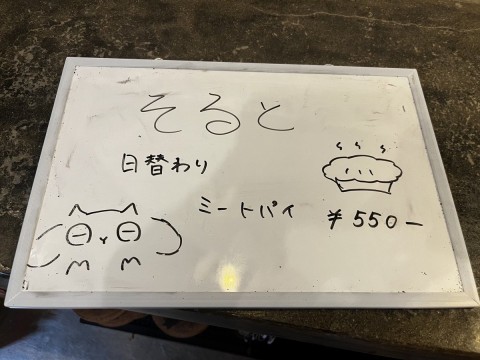 そると
日替わり
ミートパイ ¥550-